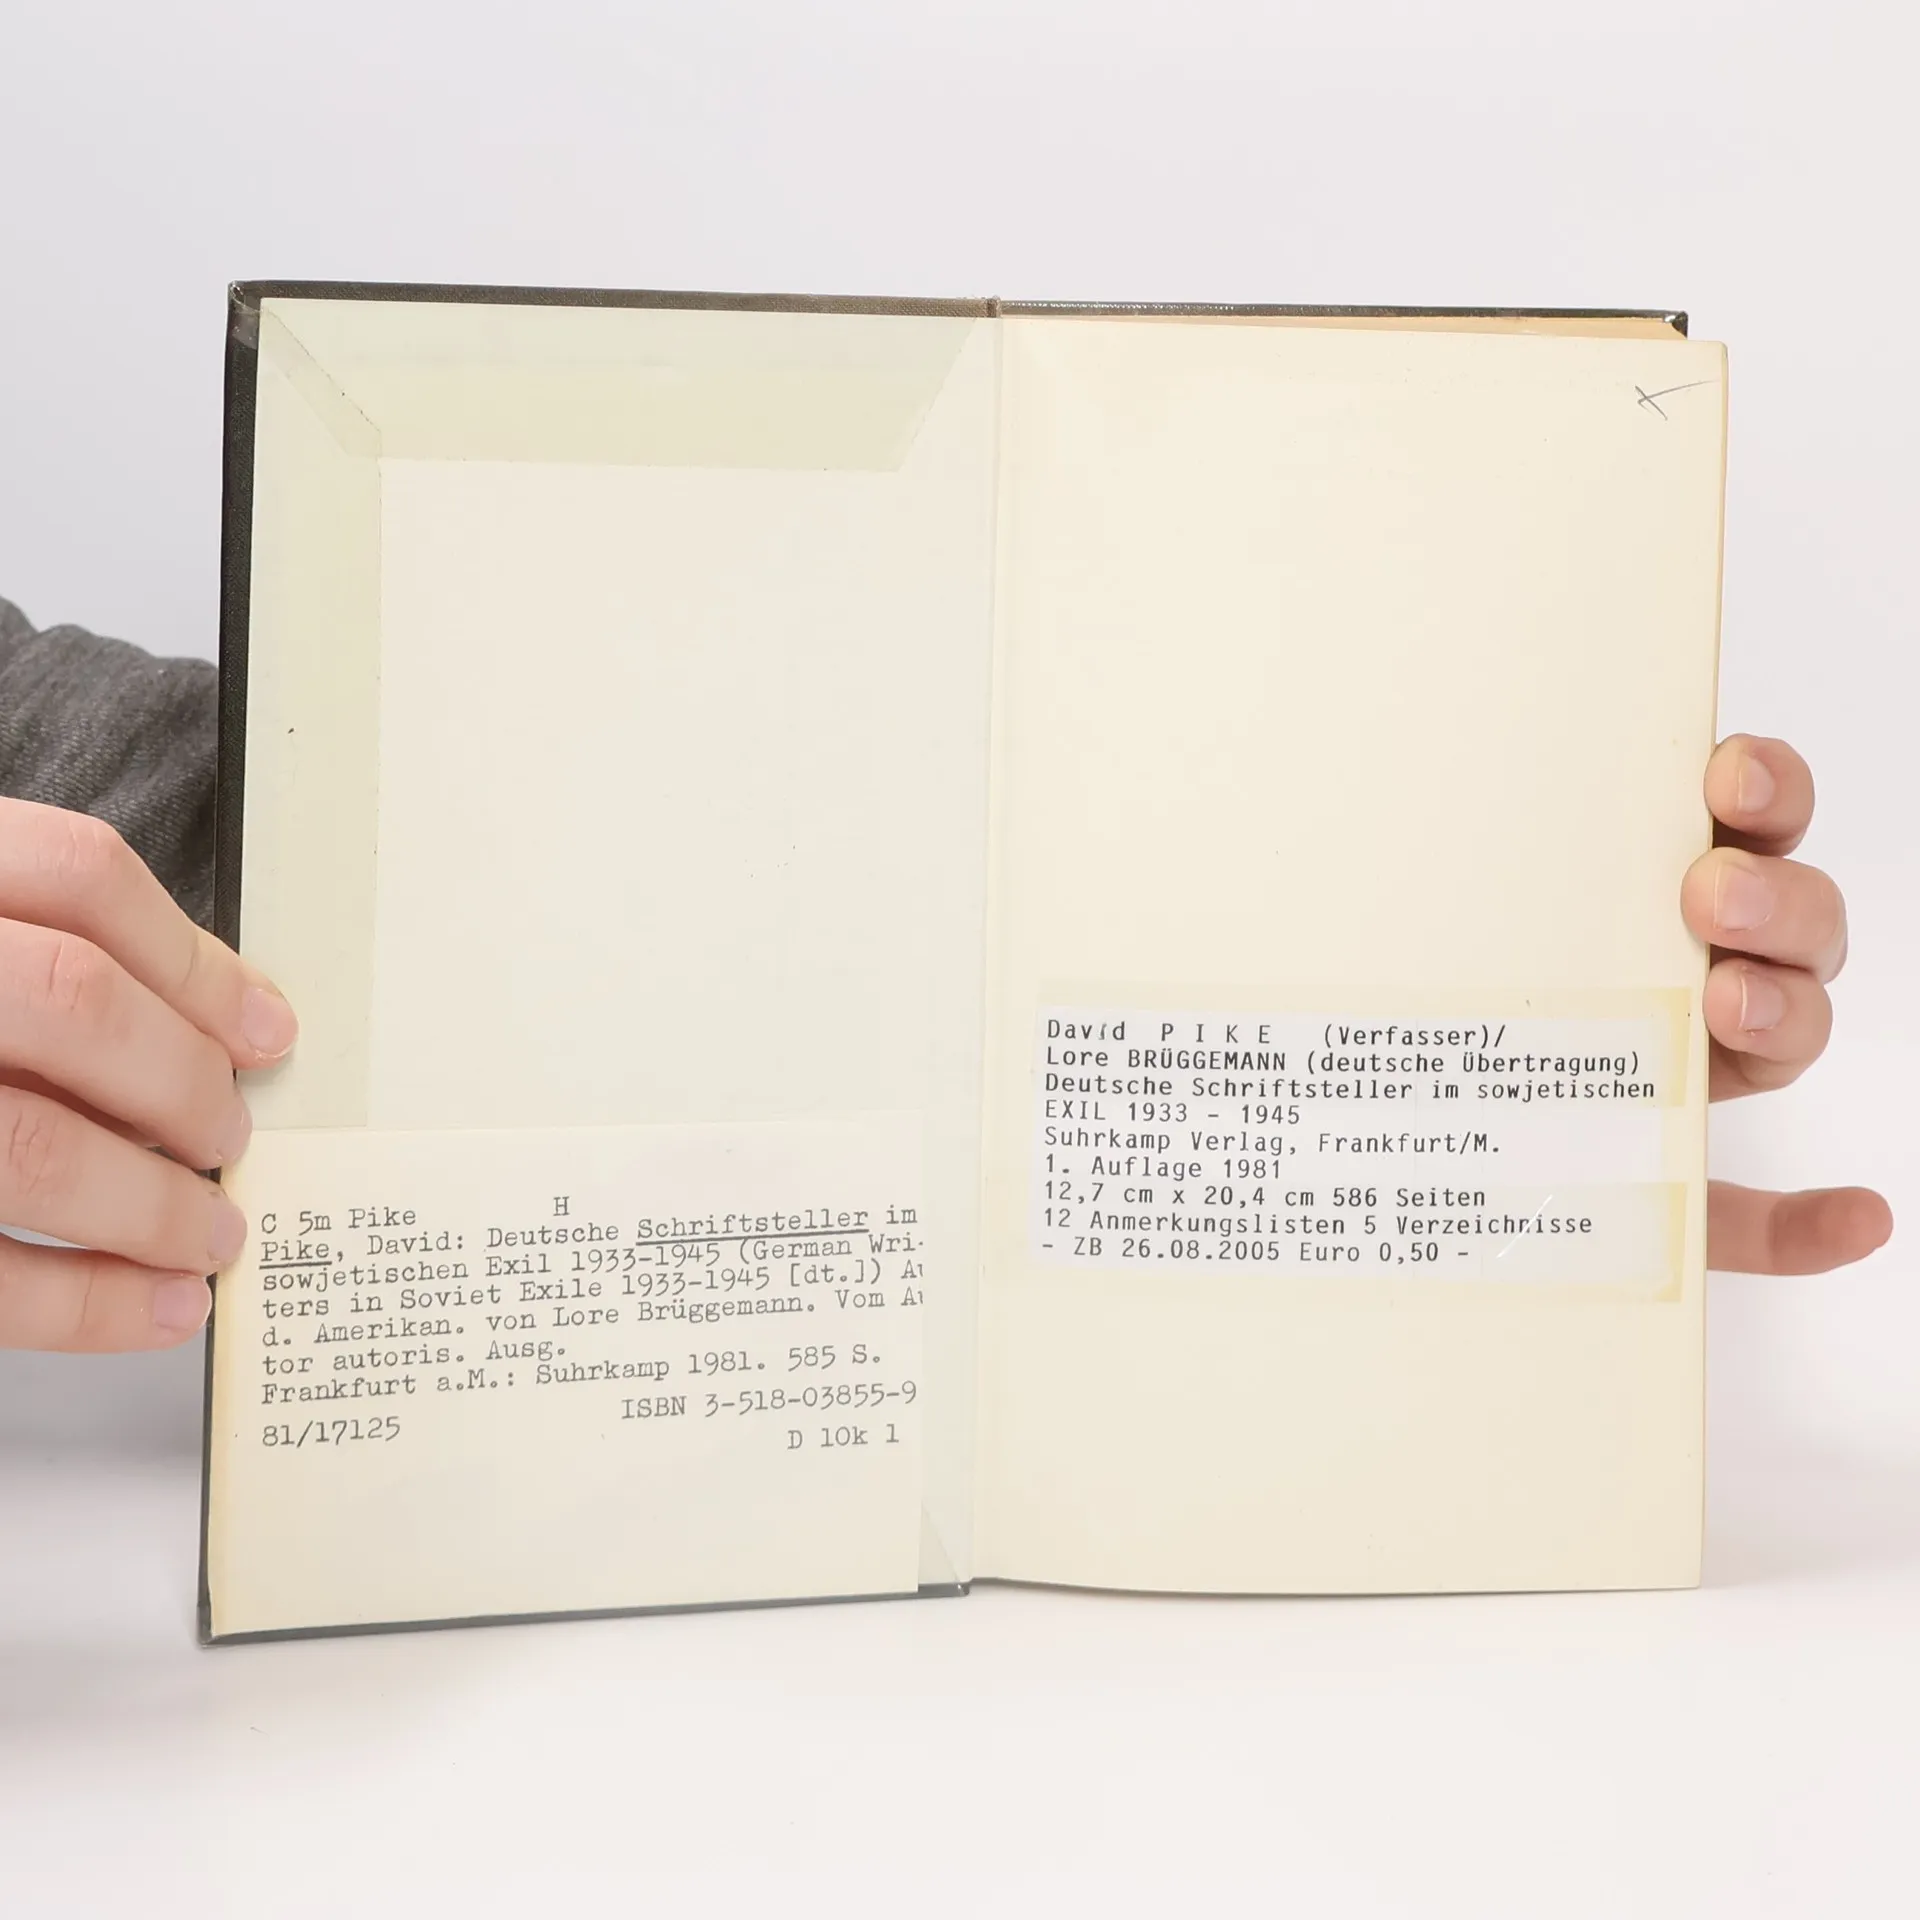 C 5m Pike H
Pike, David: Deutsche Schriftsteller im
sowjetischen Exil 1933-1945 (German Wri-
ters in Soviet Exile 1933-1945 [dt.])
d. Amerikan. von Lore Brüggemann. Vom
tor autoris. Ausg.
Frankfurt a.M.: Suhrkamp 1981. 585 S.
ISBN 3-518-03855-9
81/17125
D 10k 1
David P I K E (Verfasser)/
Lore BRÜGGEMANN (deutsche Übertragung)
Deutsche Schriftsteller im sowjetischen
EXIL 1933 - 1945
Suhrkamp Verlag, Frankfurt/M.
1. Auflage 1981
12,7 cm x 20,4 cm 586 Seiten
12 Anmerkungslisten 5 Verzeichnisse
- ZB 26.08.2005 Euro 0,50 -